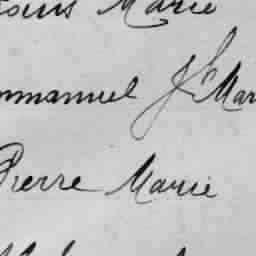 Louis Marie
Emmanuel Jh Mar
Pierre Marie